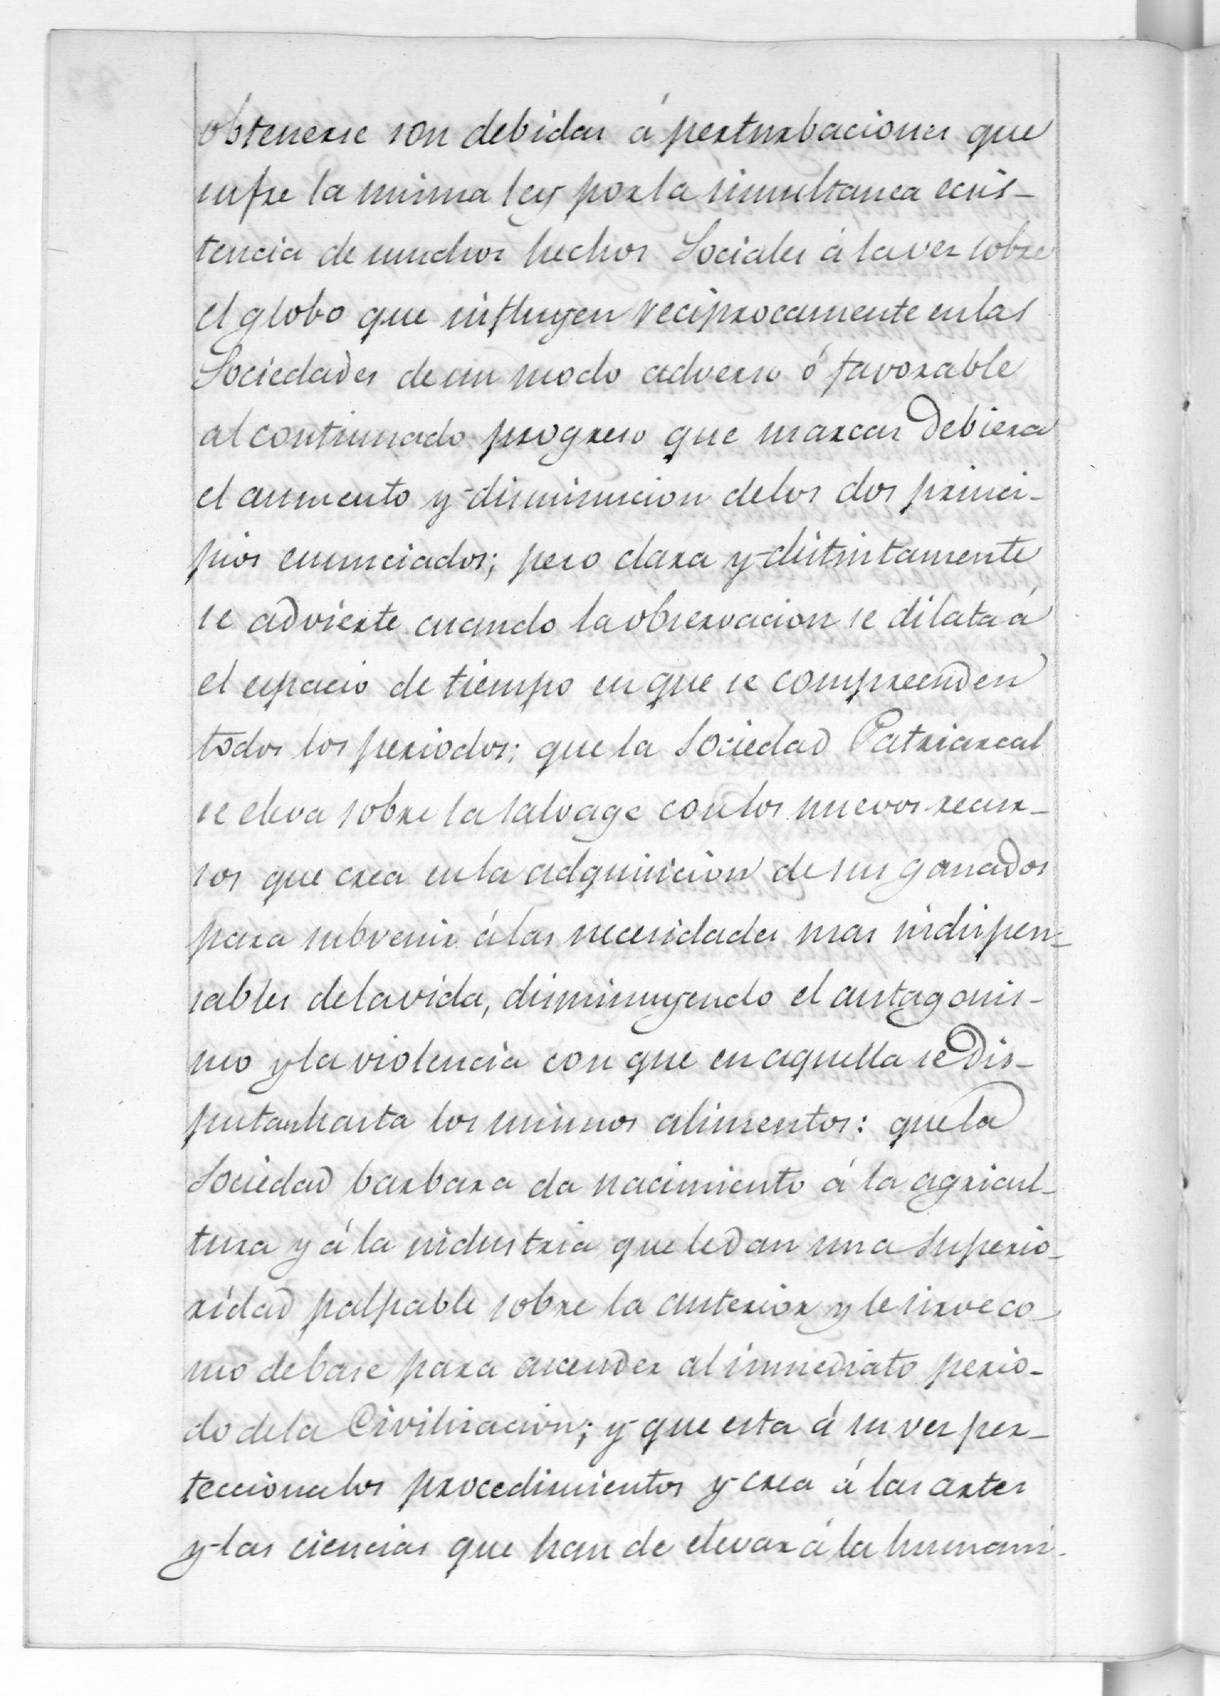 obtenerse son debidas á perturbaciones que
sufre la misma ley por la simultanea ecsis-
tencia de muchos hechos Sociales á la vez sobre
el globo que influyen reciprocamente en las
Sociedades de un modo adverso ó favorable
al continuado progreso que marcar debiera
el aumento y disminucion de los dos princi-
pios enunciados; pero clara y distintamente
se advierte cuando la observacion se dilata á
el espacio de tiempo en que se compreenden
todos los periodos: que la Sociedad Patriarcal
se eleva sobre la salvage con los nuevos recur-
sos que crea en la adquisicion de sus ganados
para subvenir á las necesidades mas indispen-
sables de la vida, disminuyendo el antagonis-
mo y la violencia con que en aquella se dis-
putan hasta los mismos alimentos: que la
Sociedad barbara da nacimiento á la agricul-
tura y á la industria que le dan una superio-
ridad palpable sobre la anterior y le sirve co
mo de base para ascender al inmediato perio-
do de la Civilizacion; y que esta á su vez per-
fecciona los procedimientos y crea á las artes
y las ciencias que han de elevar á la humani-